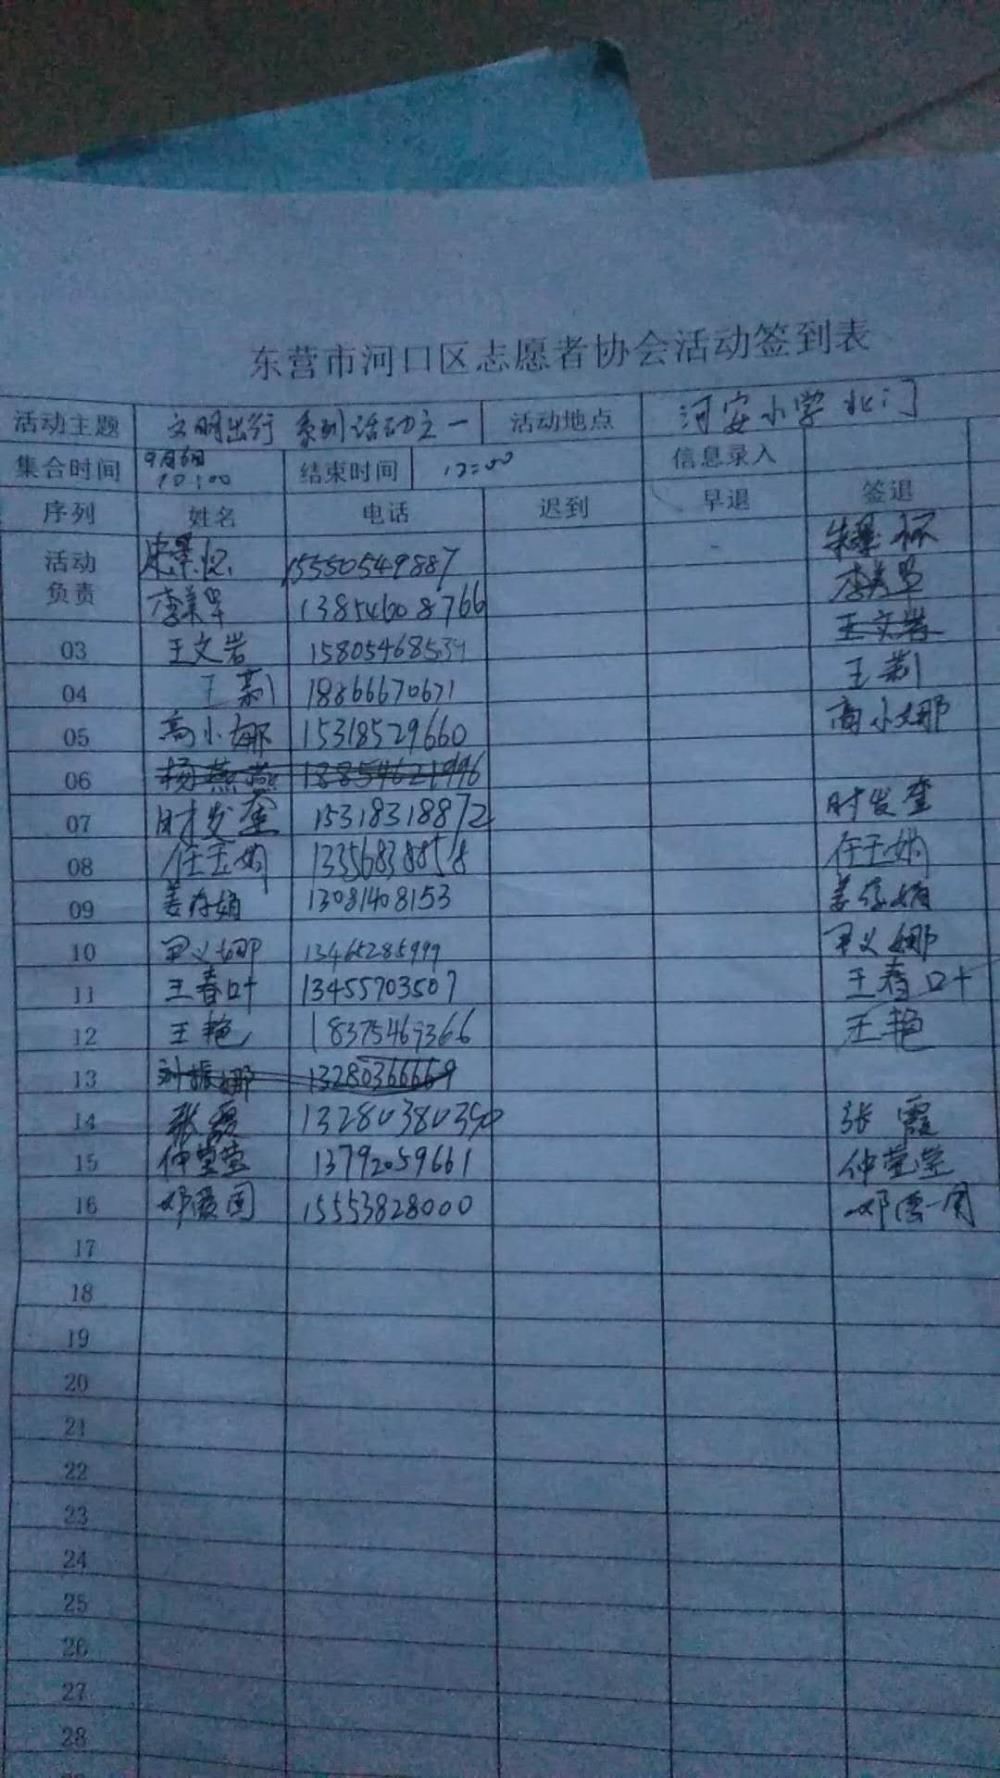 东营市河口区志愿者协会活动签到表
活动主题 文明出行 系列活动之一 活动地点 河安小学北门
集合时间 9月6日 10:00 结束时间 12:00 信息录入
序列 姓名 电话 迟到 早退 签退
活动负责 15550549887
李美 13854608766 李美
03 王文岩 15805468539 王文岩
04 王莉 18866670671 王莉
05 高小娜 15318529660 高小娜
06 杨燕燕 18854621996
07 时发奎 15318318872 时发奎
08 任玉娟 13356838858 任玉娟
09 姜存娟 13081408153 姜存娟
10 义娜 13465285999 义娜
11 王春叶 13455703507 王春叶
12 王艳 18375469366 王艳
13 刘振娜 13280366669
14 张霞 13280380390 张霞
15 仲莹莹 13792059661 仲莹莹
16 邓 15553828000 邓
17
18
19
20
21
22
23
24
25
26
27
28